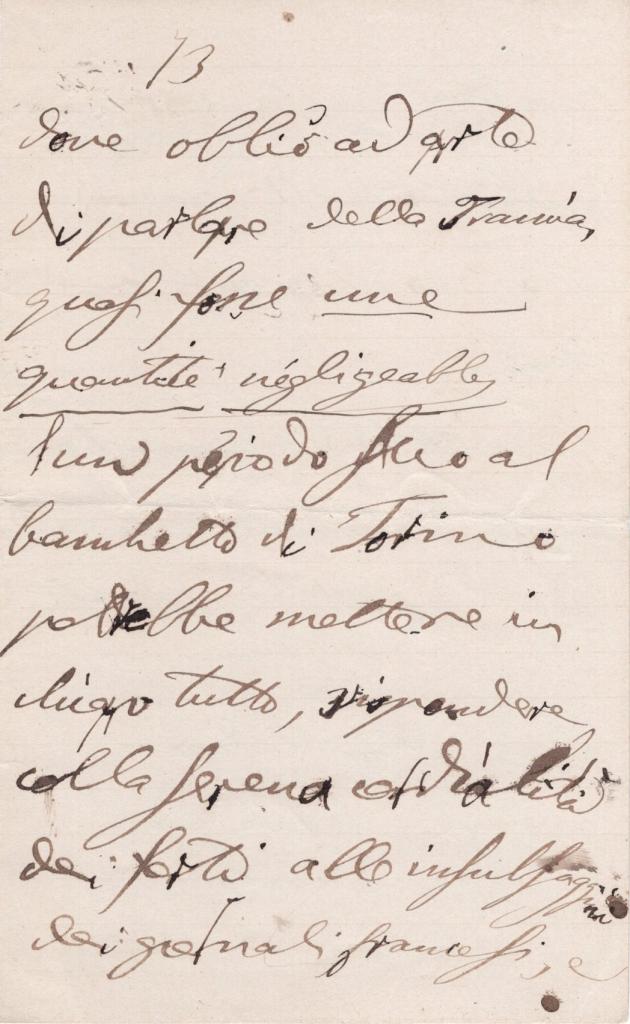 73
dove obliò ad arte
di parlare della Francia,
quasi fosse une
quantité négligeable,
Un periodo suo al
banchetto di Torino
potrebbe mettere in
luogo tutto, rispondere
colla serena cordialità
dei forti alle insulsaggini
dei giornali francesi, e